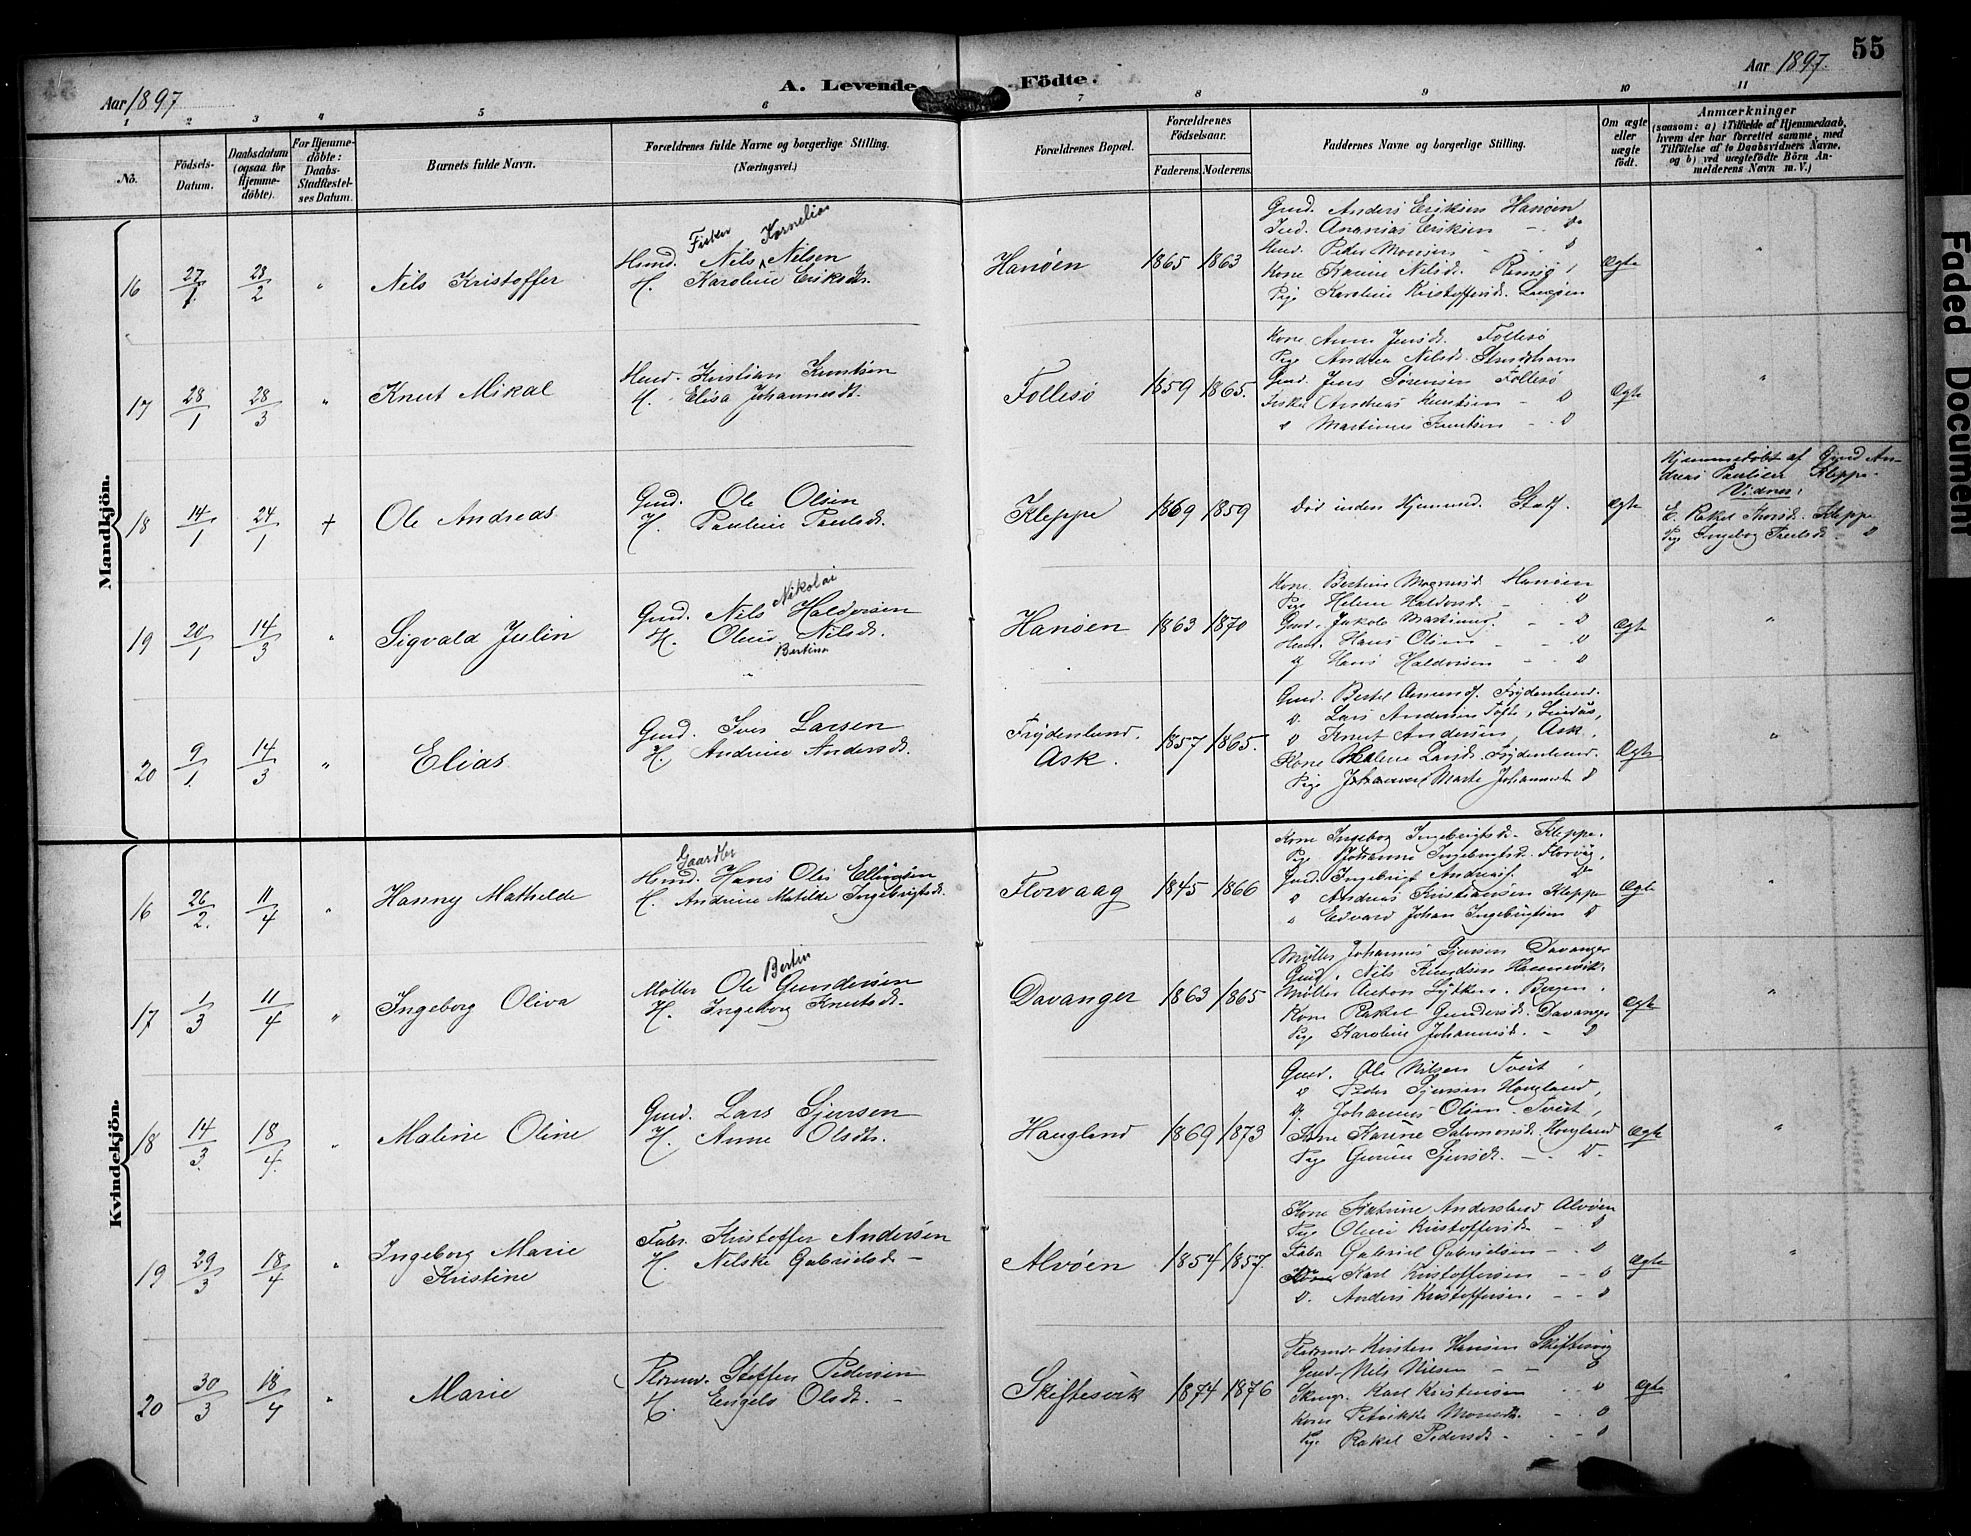 55
Aar 1897
A. Levende Födte.
Aar 1897.
1 2 3 4 5 6 7 8 9 10 11
No.
Födsels-Datum.
Daabsdatum (ogsaa for Hjemme-döbte).
For Hjemme-döbte: Daabs-Stadfæstel-ses Datum.
Barnets fulde Navn.
Forældrenes fulde Navne og borgerlige Stilling.
(Næringsvei.)
Forældrenes Bopæl.
Forældrenes Födselsaar.
Faderens. Moderens.
Faddernes Navne og borgerlige Stilling.
Om ægte eller uægte födt.
Anmærkninger
(saasom: a) i Tilfælde af Hjemmedaab,
hvem der har forrettet samme, med
Tilföielse af to Daabsvidners Navne.
og b) ved uægtefödte Börn An-
melderens Navn m. V.)
Mandkjön.
16 27/1 28/2 " Nils Kristoffer
Fisker Kornelius
Husmd. Nils Nilsen
H. Karoline Eriksdtr.
Hanöen 1865 1863
Gmd. Anders Eriksen Hanöen
Ananias Eriksen - D
Husmd. Peder Monsen - D
Kone Karine Nilsd. Ramsö,
Pige Karoline Kristoffersd.
Ægte "
17 28/1 28/3 " Knut Mikal
Husmd. Kristian Knutsen
H. Elisa Johannesdt.
Follesö 1859 1865.
Kone Anna Jensd. Follesö
Pige Andrea Nilsd.
Gmd. Jens Sörensen Follesö
Fisker Andreas Knutsen - D
D Martines Knutsen - D
Ægte "
18 14/1 24/1 + Ole Andreas.
Gmd. Ole Olsen
H. Pauline Paulsd.
Kleppe 1869 1859
Död inden Hjemmed. Stadf.
Ægte
Hjemmedöbt af Gmd An-
dreas Paulsen Kleppe
Vidner:
E. Rakel Thorsd. Kleppe
Pige Ingeborg Paulsd. D
19 20/1 14/3 " Sigvald Julin
Nikolai
Gmd. Nils Haldorsen
H. Oline Nilsd.
Bertine
Hanöen 1863 1870
Kone Bertine Magnusd. Hanöen
Pige Helene Haldorsd. - D
Gmd. Jakob Martinus - D
Husm. Hans Olsen - D
D Hans Haldorsen - D
Ægte "
20 9/1 14/3 " Elias
Gmd. Iver Larsen
H. Andrine Andersd.
Fröydenlund. Ask. 1857 1865.
Gmd. Bertel Amunds. Fröydenlund.
D. Lars Andersen Tofte, Lindås,
D Knut Andersen, Ask,
Kone Malene Larsd. Fröydenlund.
Pige Johanne Marte Johannesd D
Ægte "
Kvindekjön.
16 26/2. 11/4 " Hanny Mathilde
Gaardbr
Husmd. Hans Olai Ellingsen
H. Andrine Matilde Ingebrigtsd.
Florvaag 1845 1866
Kone Ingeborg Ingebrigtsd. Kleppe.
Pige Johanne Ingebrigtsd. Florvåg,
Gmd. Ingebrigt Andreass. D
D Andreas Kristiansen Kleppe
D Edvard Johan Ingebrigtsen D
Ægte "
17 1/3 11/4 " Ingeborg Oliva
Bertin
Möller Ole Gundersen
H. Ingeborg Knutsd.
Davanger 1863 1865
Möller Johannes Sjursen Davanger
Gmd. Nils Knudsen Hanevik.
Möller Anton Lytken. Bergen.
Kone Rakel Gundersd. Davanger
Pige Karoline Johannesd. - D
Ægte "
18 14/3. 18/4. " Maline Oline
Gmd. Lars Sjursen
H. Anne Olsdtr.
Haugland 1869 1873
Gmd. Ole Nilsen Tveit,
D Peder Sjursen Haugland,
D. Johannes Olsen. Tveit,
Kone Karine Salomonsd. Haugland
Pige Gurine Sjursd. - D
Ægte "
19 29/3 18/4 " Ingeborg Marie Kristine
Fabr. Kristoffer Andersen
H. Nelske Gabrielsd. -
Alvöen 1854 1857.
Kone Katrine Andersland Alvöen
Pige Oline Kristoffersd. - D
Fabr Gabriel Gabrielsen - D
Karl Kristoffersen - D
D. Anders Kristoffersen. - D
Ægte "
20 30/3 18/4 " Marie
Pladsmd. Steffen Pedersen
H. Engels Olsdt. -
Skiftesvik 1874 1876
Pladsmd. Kirsten Hansen Skiftesvig
Gmd. Nils Nilsen - D
Karl Kristensen - D
Kone Petrikke Monsdt. - D
Pige Rakel Pedersdt. - D
Ægte "
Faded Document